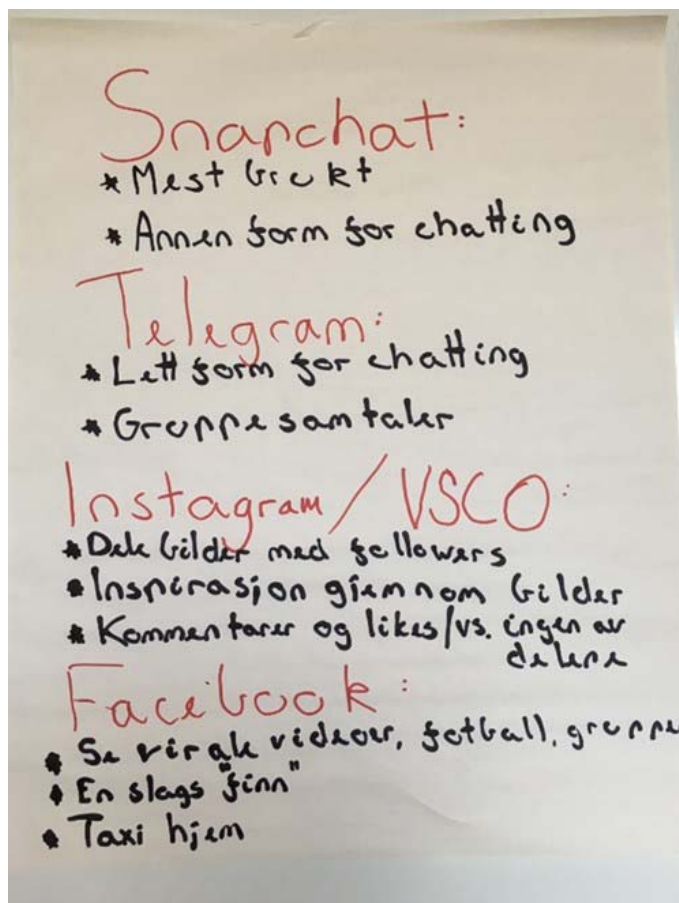 Snapchat:
* Mest brukt
* Annen form for chatting
Telegram:
* Lett form for chatting
* Gruppesamtaler
Instagram/VSCO:
* Dele bilder med followers
* Inspirasjon gjennom bilder
* Kommentarer og likes/vs. ingen av
delene
Facebook:
* Se virale videoer, fotball, gruppe
* En slags "finn"
* Taxi hjem